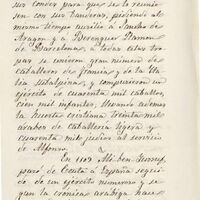 sus condes para que se le reunie-
sen con sus banderas, pidiendo al
mismo tiempo auxilio a Sancho de
Aragon y a Berenguer Ramon
de Barcelona, a todas estas tro-
pas se unieron gran numero de
caballeros de francia y de la Ita
lia subalpina, y compusieron un
ejército de cuarenta mil caballos,
cien mil infantes, llevando ademas
la hueste cristiana treinta mil
arabes de caballeria ligera y
cuarenta mil judios al servicio
de Alfonso.
En 1109 Ali-ben-Yussuf,
pasó de Ceuta a España segui-
do de un ejército numeroso y se
gun la cronica arabiga hace